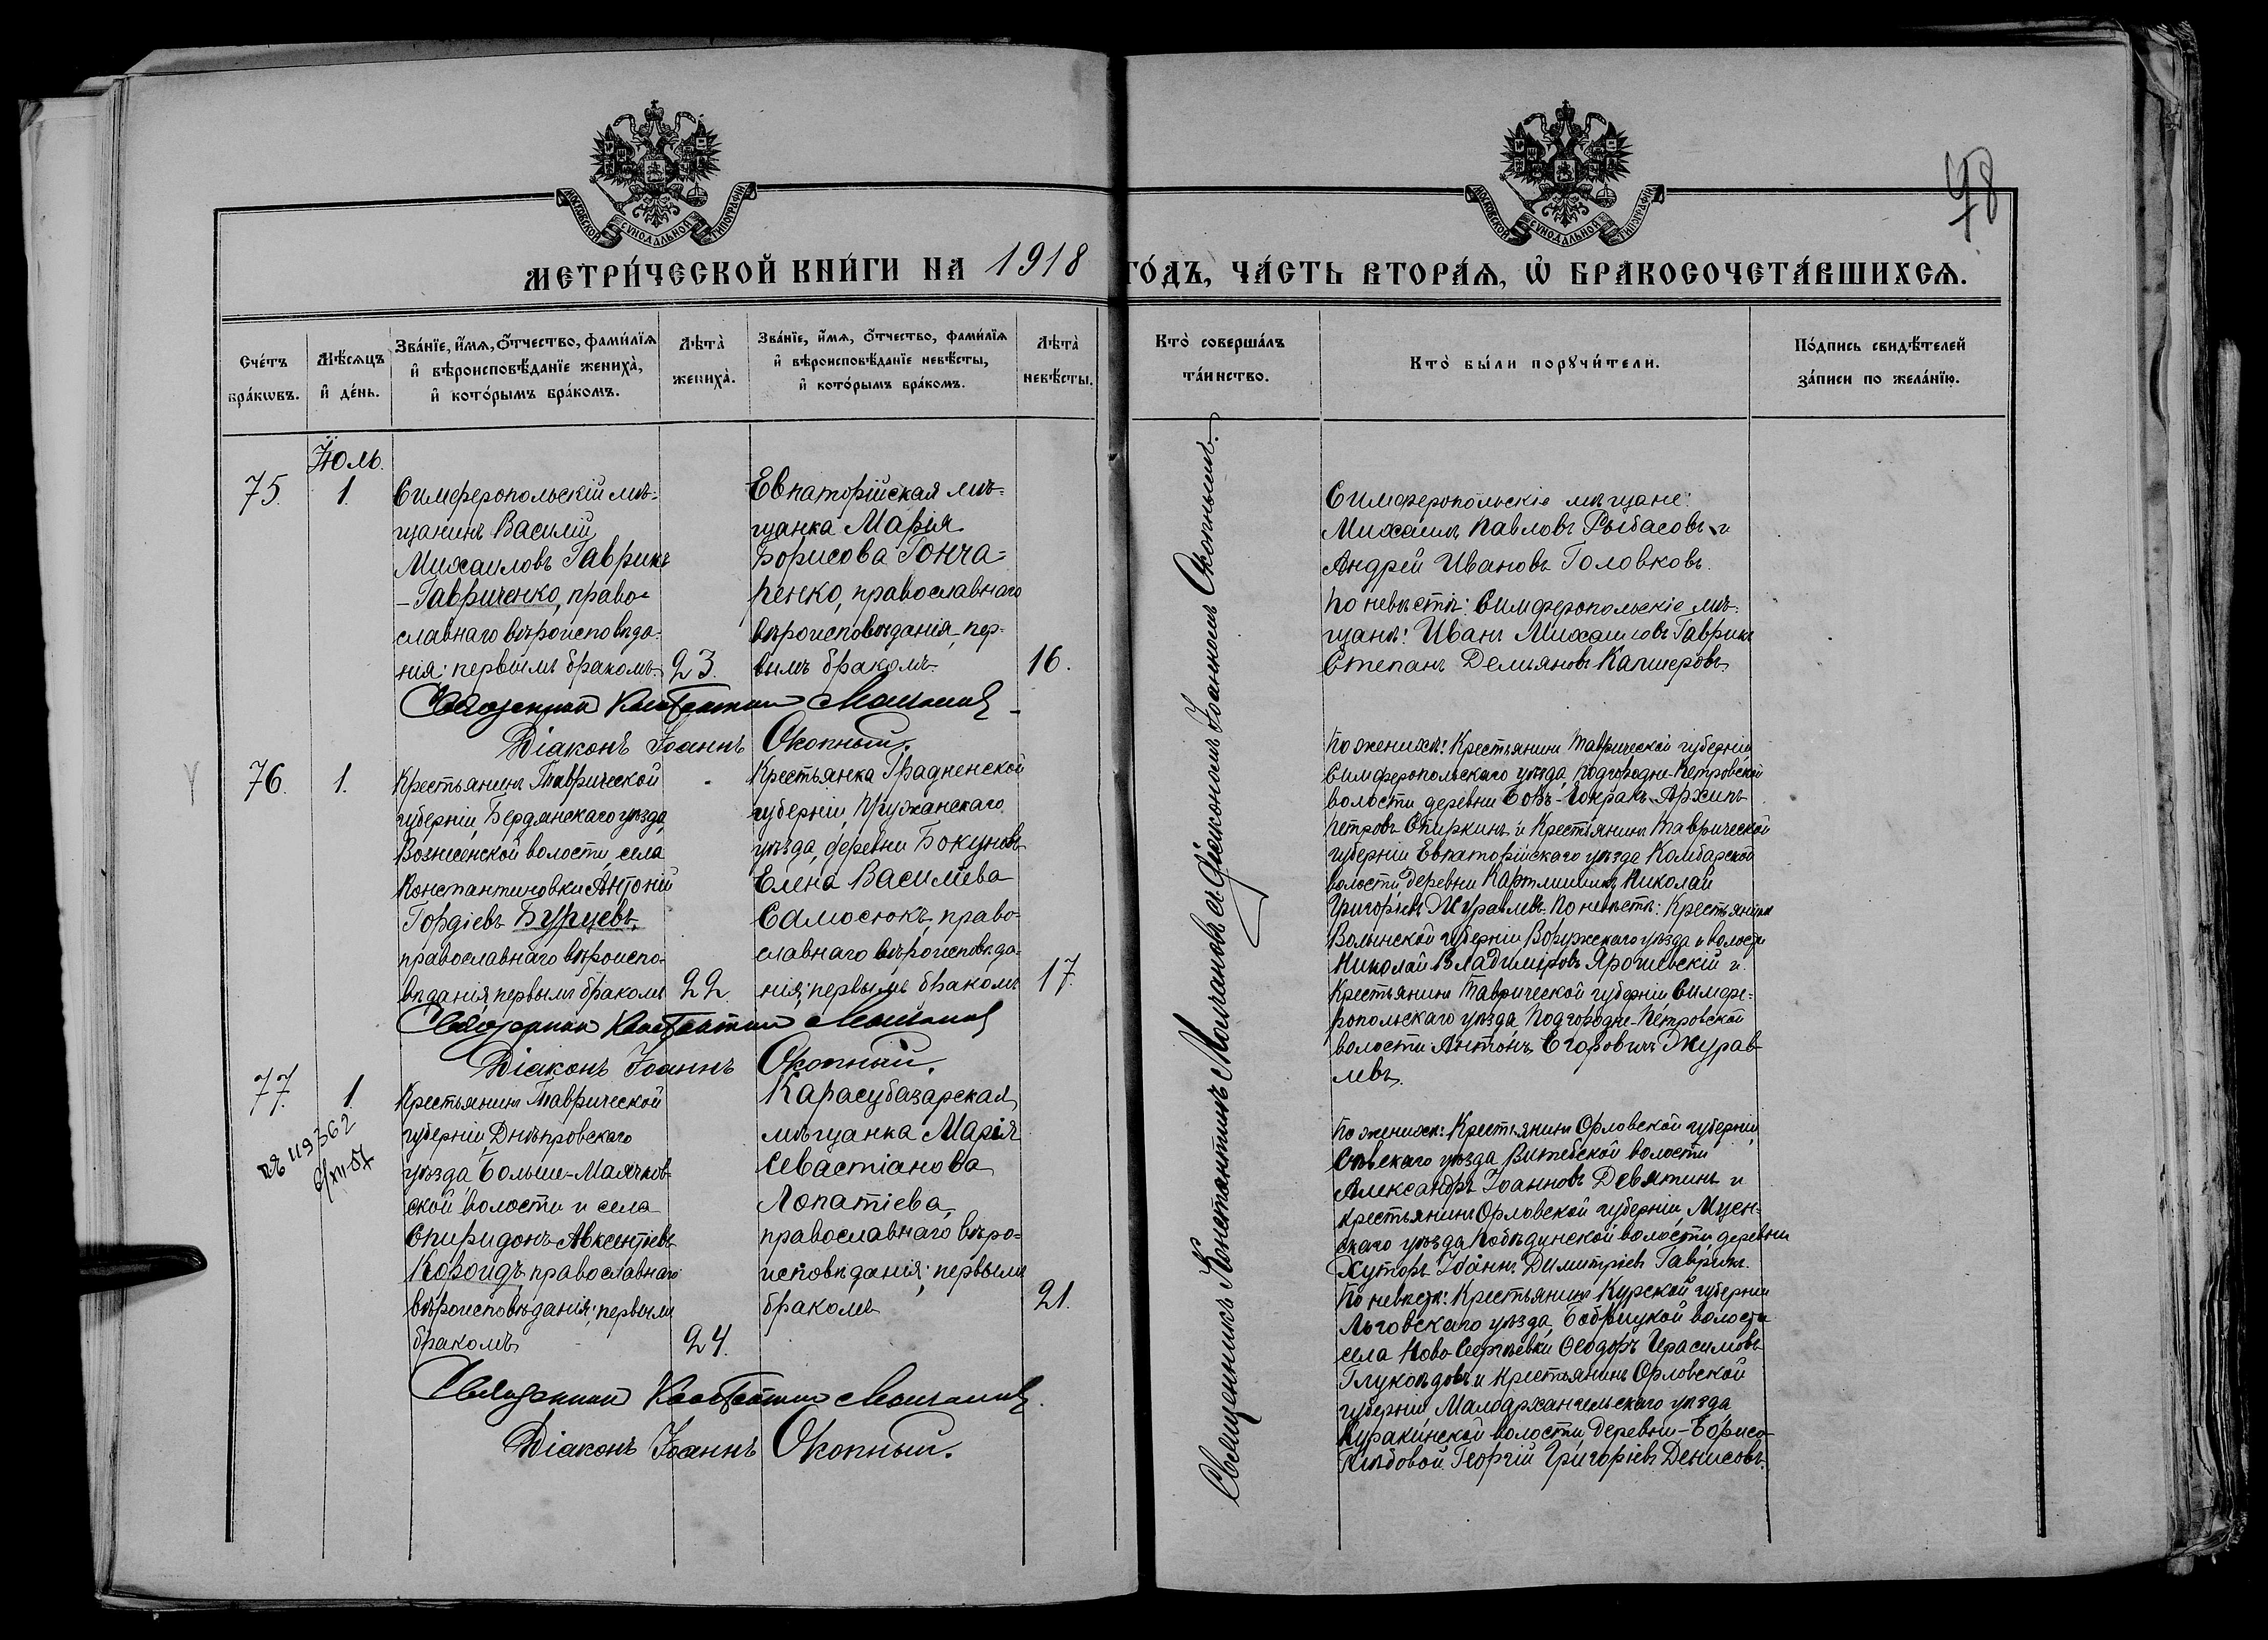 78
МОСКОВСКОЙ СѴНОДАЛЬНОЙ ТИПОГРАФІИ
МОСКОВСКОЙ СѴНОДАЛЬНОЙ ТИПОГРАФІИ
МЕТРИ́ЧЕСКОЙ КНИ́ГИ НА 1918 ГО́ДЪ, ЧА́СТЬ ВТОРА́Ѧ, Ѡ҆ БРАКОСОЧЕТА́ВШИХСѦ.
Сче́тъ бра́кѡвъ.
Мѣ́сѧцъ и҆ де́нь.
Зва́нїе, и҆́мѧ, ѻ҆́тчество, фами́лїѧ и҆ вѣроисповѣ́данїе жениха̀, и҆ кото́рымъ бра́комъ.
Лѣта̀ жениха̀.
Зва́нїе, и҆́мѧ, ѻ҆́тчество, фами́лїѧ и҆ вѣроисповѣ́данїе невѣ́сты, и҆ кото́рымъ бра́комъ.
Лѣта̀ невѣ́сты.
Кто̀ соверша́лъ та́инство.
Кто̀ бы́ли порꙋчи́тели.
По́дпись свидѣ́телей за́писи по жела́нїю.
Іюль.
75. 1.
Симферопольскій мѣ-
щанинъ Василій
Михаиловъ Гаврикъ
- Гавриченко, право-
славнаго вѣроисповѣда-
нія: первымъ бракомъ. 23.
Евпаторійская мѣ-
щанка Марія
Борисова Гонча-
ренко, православнаго
вѣроисповѣданія, пер-
вымъ бракомъ. 16.
Священникъ Константинъ Молчановъ
Діаконъ Іоаннъ Окопный.
Симферопольскіе мѣщане:
Михаилъ Павловъ Рыбасовъ и
Андрей Ивановъ Головковъ.
По невѣстѣ: Симферопольскіе мѣ-
щане: Иванъ Михаиловъ Гаврикъ
Степанъ Демьяновъ Капшеровъ.
76. 1.
Крестьянинъ Таврической
губерніи, Бердянскаго уѣзда
Вознесенской волости, села
Константиновки Антоній
Гордіевъ Бурцевъ,
православнаго вѣроиспо-
вѣданія, первымъ бракомъ 22.
Крестьянка Градненской
губерніи, Пружанскаго
уѣзда, деревни Бокуновъ
Елена Василіева
Самосюкъ, право-
славнаго вѣроисповѣда-
нія; первымъ бракомъ 17.
Священникъ Константинъ Молчановъ
Діаконъ Іоаннъ Окопный.
По женихѣ: Крестьянинъ Таврической губерніи
Симферопольскаго уѣзда, Подгородне-Петровской
волости, деревни Архипъ
Петровъ Спиркинъ и Крестьянинъ Таврической
губерніи Евпаторійскаго уѣзда Камбарской
волости, деревни Николай
Григорьевъ Журавлевъ. По невѣстѣ: Крестьянинъ
Волынской губерніи уѣзда и волости
Николай Владиміровъ и
Крестьянинъ Таврической губерніи, Симфе-
ропольскаго уѣзда, Подгородне-Петровской
волости Антонъ Егоровичъ Журав-
левъ.
77. 1.
119362
Крестьянинъ Таврической
губерніи Днѣпровскаго
уѣзда, Больше-Маячков-
ской волости и села
Спиридонъ Авксентіевъ
Ководидъ, православнаго
вѣроисповѣданія; первымъ
бракомъ 24.
Карасубазарская
мѣщанка Марія
Севастіанова
Лопатіева,
православнаго вѣро-
исповѣданія; первымъ
бракомъ 21.
Священникъ Константинъ Молчановъ.
Діаконъ Іоаннъ Окопный.
По женихѣ: Крестьянинъ Орловской губерніи,
Сѣвскаго уѣзда волости
Александръ Іоанновъ Девятинъ и
крестьянинъ Орловской губерніи, Мцен-
скаго уѣзда волости, деревни
Хуторъ Іоаннъ Димитріевъ Гаврикъ.
По невѣстѣ: Крестьянинъ Курской губерніи
Льговскаго уѣзда, волости
села Ново-Сергѣевки Ѳеодоръ Герасимовъ
и Крестьянинъ Орловской
губерніи Малоархангельскаго уѣзда,
Куракинской волости, деревни
Георгій Григорьевъ Денисовъ.
Священникъ Константинъ Молчановъ съ діакономъ Іоанномъ Окопнымъ.